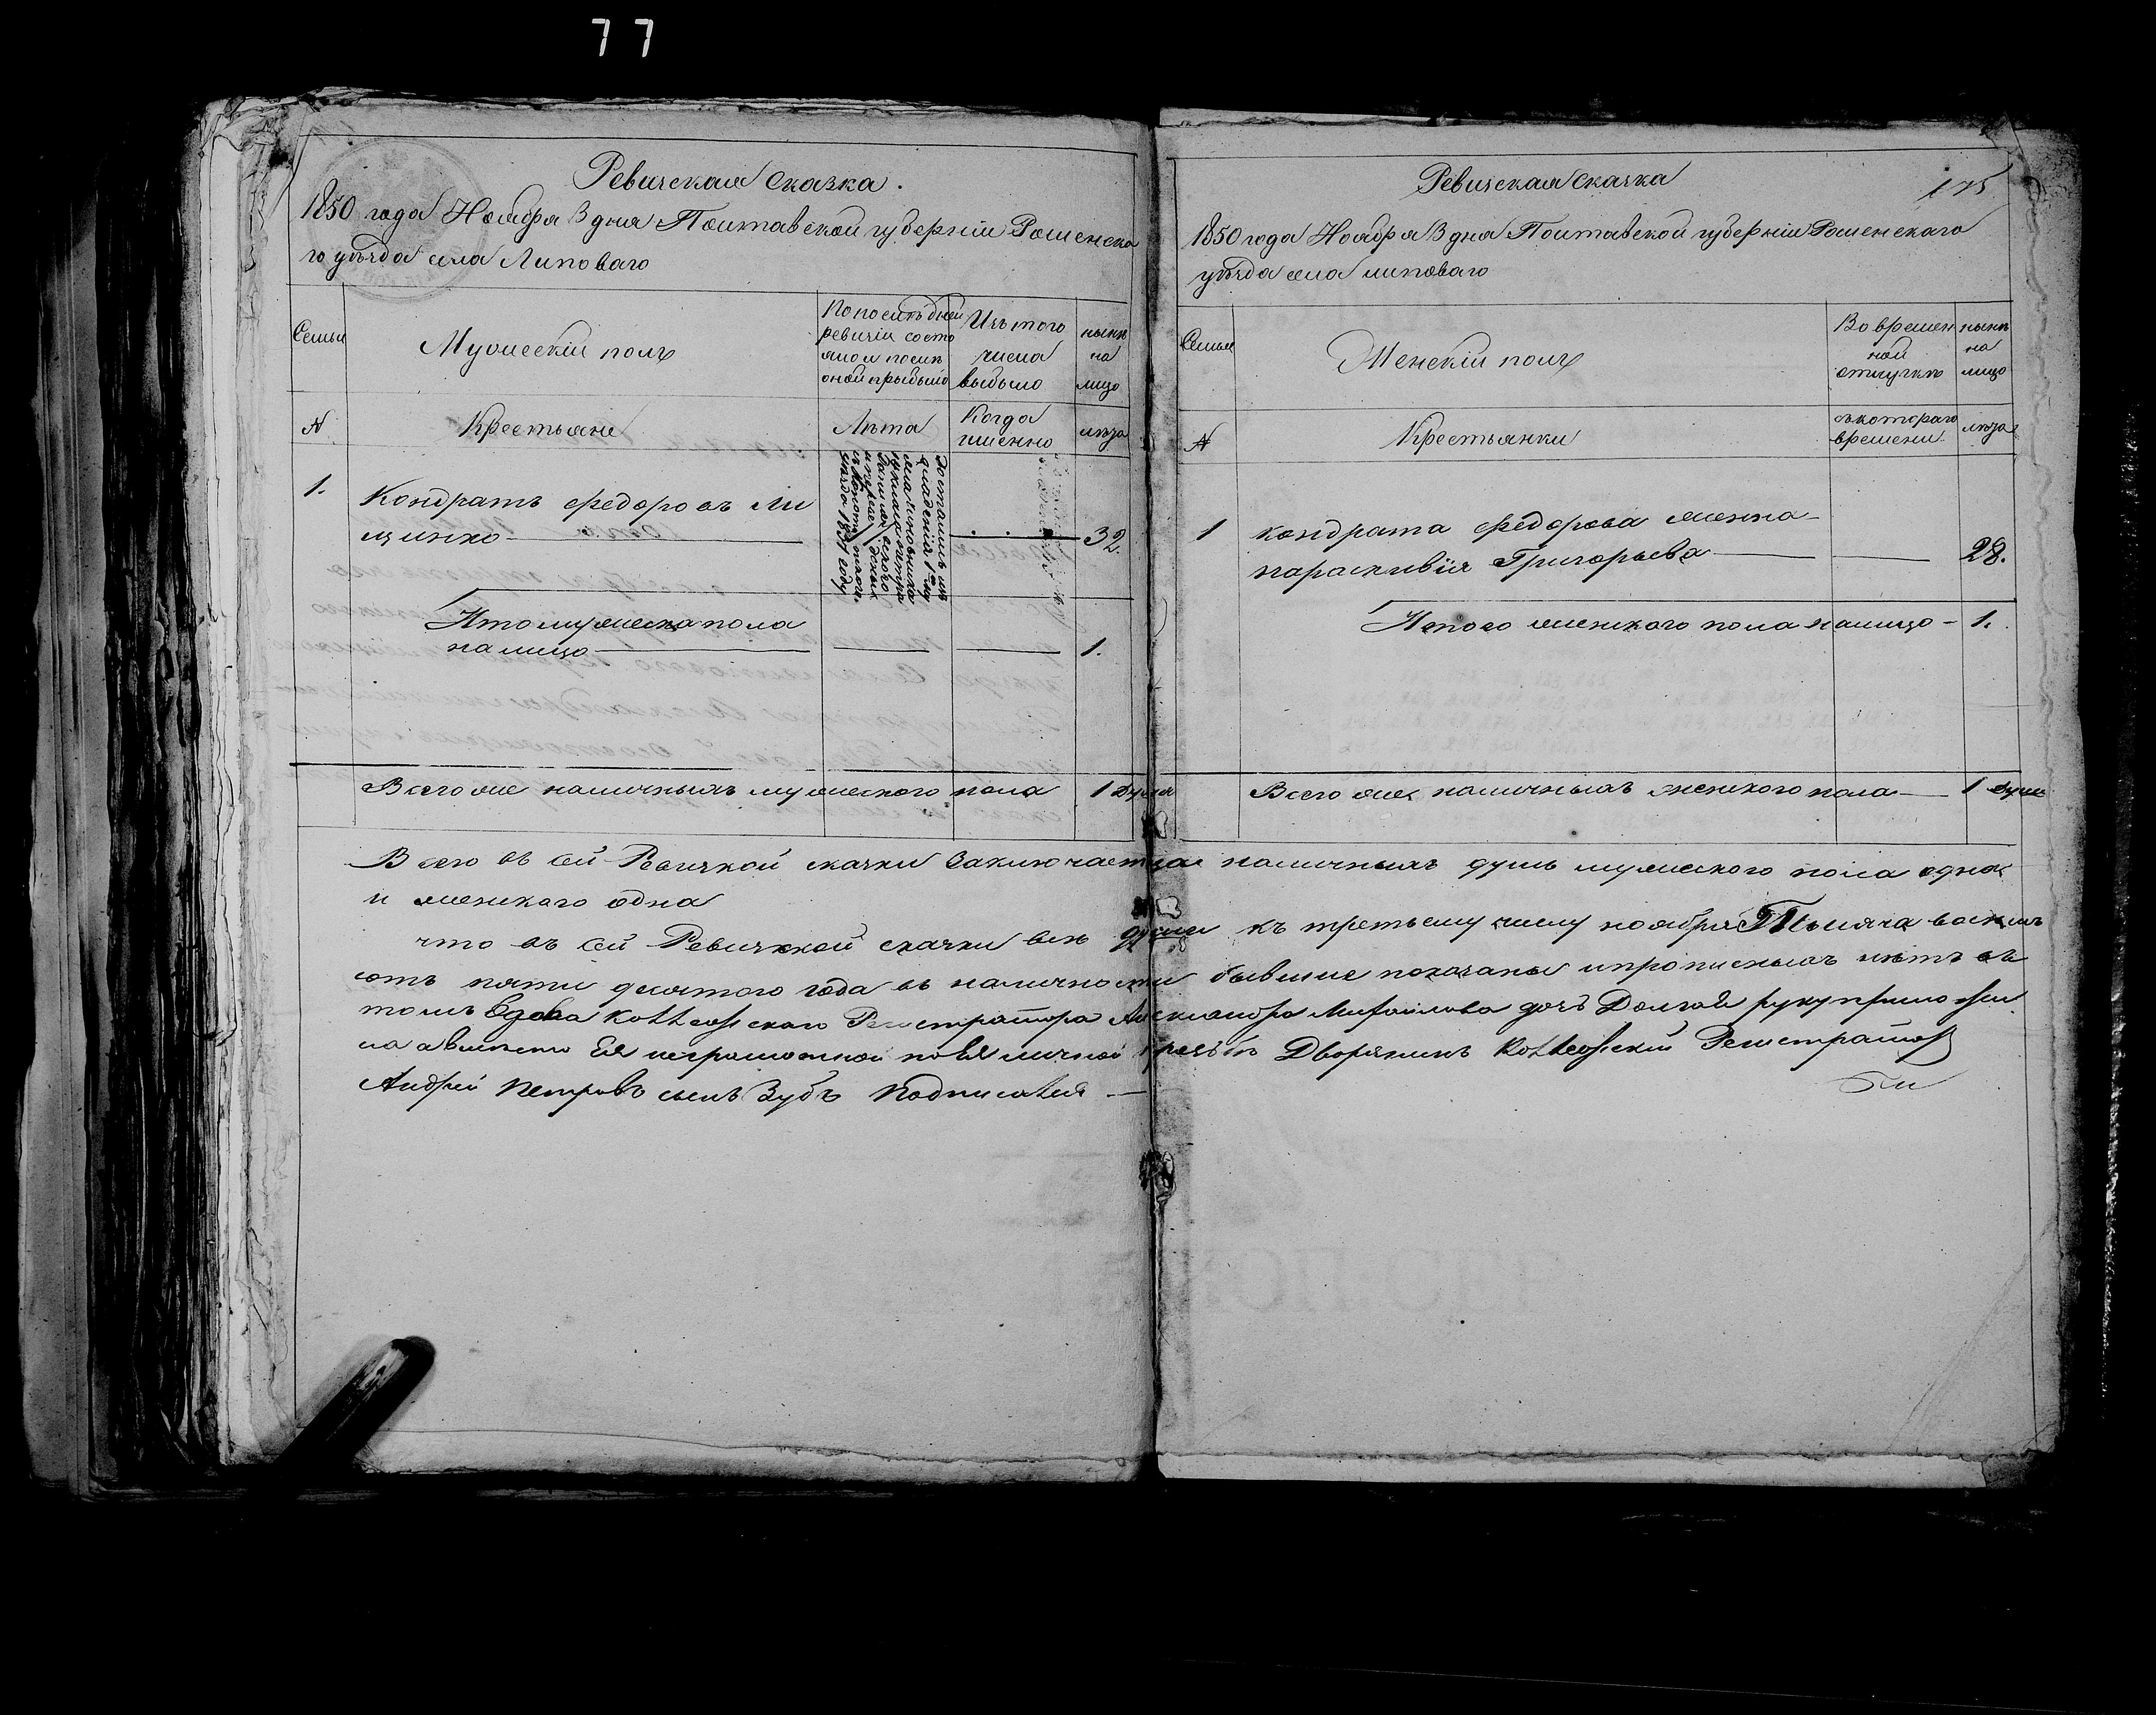 77
Ревизская сказка.
1850 года Ноября 3 дня Полтавской губерніи Роменска
го уѣзда села Липоваго
Семьи
Мужескій полъ
По послѣдней ревизіи состо яло и послѣ оной прибыло
Изъ того числа выбыло
нынѣ на лицо
N
Крестьяне
Лѣта
Когда именно
лѣта
1.
Кондратъ Федоровъ Ли
щинко
32.
Итого мужеска пола
на лицо
1.
Всего же наличныхъ мужескаго пола 1 душа
Ревизская сказка
175
1850 года Ноября 3 дня Полтавской губерніи Роменскаго
уѣзда села липоваго
Семьи
Женскій полъ
Во времен ной отлучкѣ
нынѣ на лицо
N
Крестьянки
съ котораго времени
лѣта
1
кондрата федорова жена
параскивія Григорьева
28.
Итого женскаго пола налицо - 1.
Всего же наличныхъ женскаго пола 1 душа
Всего въ сей Ревизкой сказки заключается наличныхъ душъ мужескаго пола одна
и женскаго одна
что въ сей Ревизской сказки всѣ души къ третьему числу ноября Тысяча восемь
сотъ пяти десятого года въ наличности бывшие показаны и прописныхъ нѣтъ въ
томъ вдова Коллежскаго Регистратора Александра Михайлова дочь Долгой руку приложи
ла а вместо Ея неграмотной по Ея личной прозьбѣ Дворянинъ Коллежскій Регистраторъ
Андрей Петровъ сынъ Зубъ Подписался